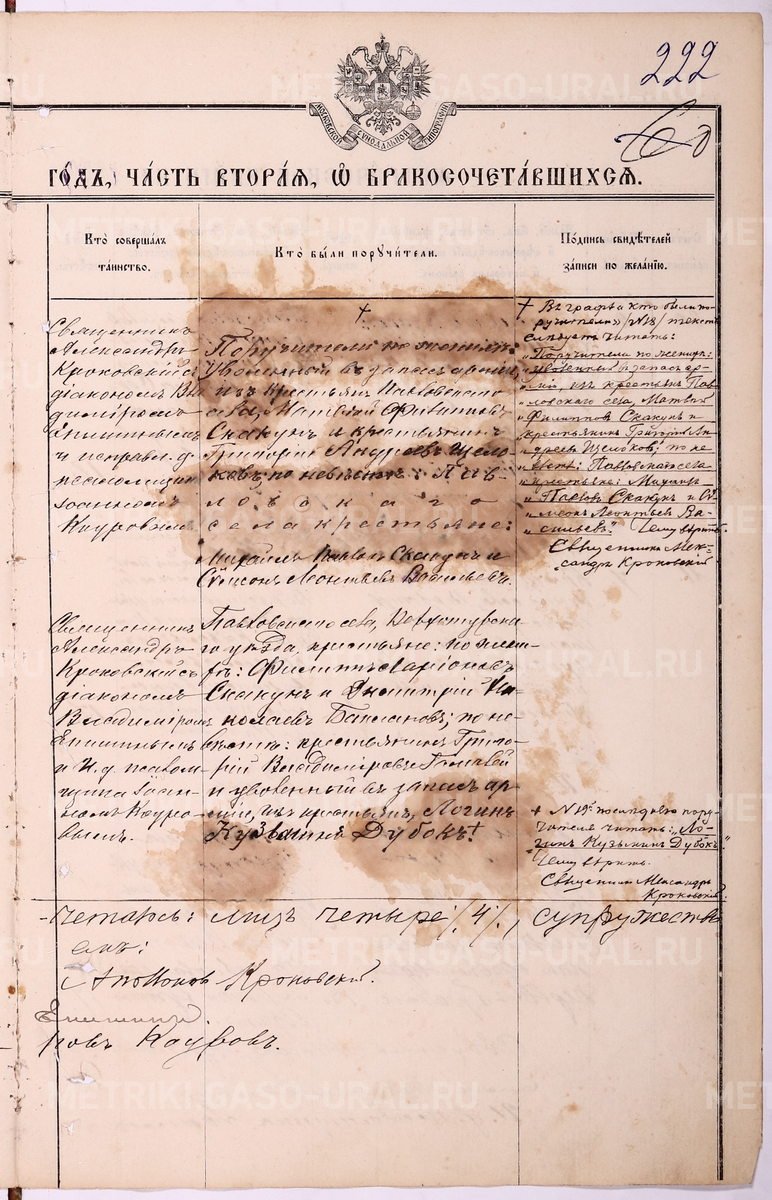 222
60
МОСКОВСКОЙ СѴНОДАЛЬНОЙ ТИПОГРАФІИ
ГОДЪ, ЧАСТЬ ВТОРАЯ, Ѡ БРАКОСОЧЕТАВШИХСЯ.
Кто совершалъ
таинство.
Кто были поручители.
Подпись свидѣтелей
записи по желанію.
Священникъ
Александръ
Кроковскій съ
діакономъ Вла
диміромъ
Епишинымъ
и исправл. д.
псаломщика
Іоанномъ
Кауровымъ
+
Поручители по женихѣ:
уволенный въ запасъ арміи,
изъ крестьянъ Павловскаго
села, Матвѣй Филипповъ
Скакунъ и крестьянинъ
Григорій Андреевъ Щелоковъ;
по невѣстѣ: Пав
ловскаго
села крестьяне:
Михаилъ Павловъ Скакунъ и
Сѵмеонъ Леонтьевъ Васильевъ.
+ Въ графѣ „кто были по-
ручители“ /№18/ текстъ
слѣдуетъ читать:
„Поручители по женихѣ:
„уволенный въ запасъ ар-
„міи, изъ крестьянъ Пав-
„ловскаго села, Матвѣй
„Филипповъ Скакунъ и
„крестьянинъ Григорій Ан-
„дреевъ Щелоковъ; по не-
„вѣстѣ: Павловскаго села
„крестьяне: Михаилъ
„Павловъ Скакунъ и Сѵ-
„меонъ Леонтьевъ Ва-
„сильевъ.“ Чему вѣрить.
Священникъ Алек-
сандръ Кроковскій.
Священникъ
Александръ
Кроковскій съ
діакономъ
Владиміромъ
Епишинымъ
и И. д. псалом-
щика Іоан-
номъ Кауро-
вымъ.
Павловскаго села, Верхотурска-
го уѣзда, крестьяне: по жени-
хѣ: Филиппъ Иларіоновъ
Скакунъ и Димитрій Ни-
колаевъ Баклановъ; по не-
вѣстѣ: крестьянинъ Григо-
рій Владиміровъ
и уволенный въ запасъ ар-
міи, изъ крестьянъ, Логинъ
Кузьминъ Дубокъ.+
+ №19 послѣдняго пору-
чителя читать: „Ло-
„гинъ Кузьминъ Дубокъ.“
Чему вѣрить.
Священникъ Александръ
Кроковскій.
-четаюсь: лизъ четыре /.4/., супружеств
акъ:
Кроковскій.
Епишинъ
Кауровъ.